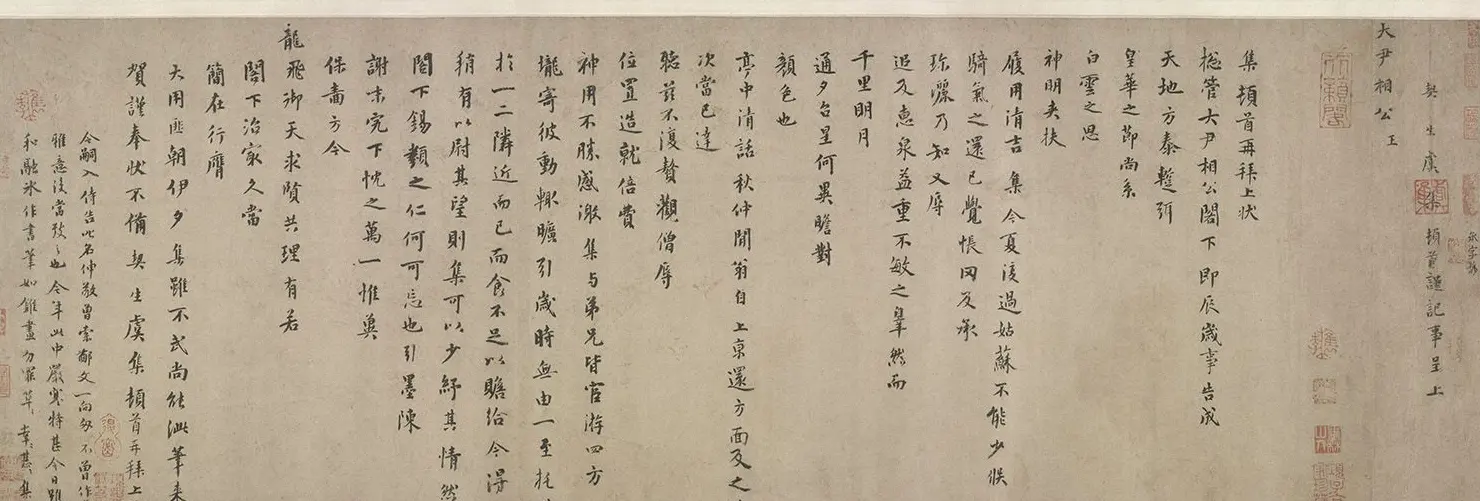 大尹相公 玉
契生虞集頓首謹記事呈上
集頓首再拜上狀
摠管大尹相公閤下即辰歲事告成
天地方泰蹔弭
皇華之節尚系
白雲之思
神明夾扶
履用清吉集今夏渡過姑蘇不能少候
騎氣之還已覺悵罔及承
珎灑乃知又辱
追及惠泉益重不敏之辠然而
千里明月
通夕台星何異瞻對
顏色也
亭中清話秋仲閒翁自上京還方面及之
次當已達
聽茲不復贅觀僧辱
位置造就倍費
神用不勝感激集与弟兄皆官游四方
壠寄彼動輒曠引歲時無由一至托
於一二隣近而已而食不足以贍給今得
稍有以尉其望則集可以少紓其情然
閤下錫類之仁何可忘也引墨陳
謝未究下忱之萬一惟冀
保嗇方今
龍飛御天求賢共理有若
閤下治家久當
簡在行膺
大用匪朝伊夕集雖不武尚能泚筆來
賀謹奉狀不備契生虞集頓首再拜上
令嗣入侍告以名仲敬曾索鄙文一向匆不曾作
雅意後當致〻也今年此中嚴寒特甚今日雖
和融氷作書筆如錐畫勿罪草幸甚集